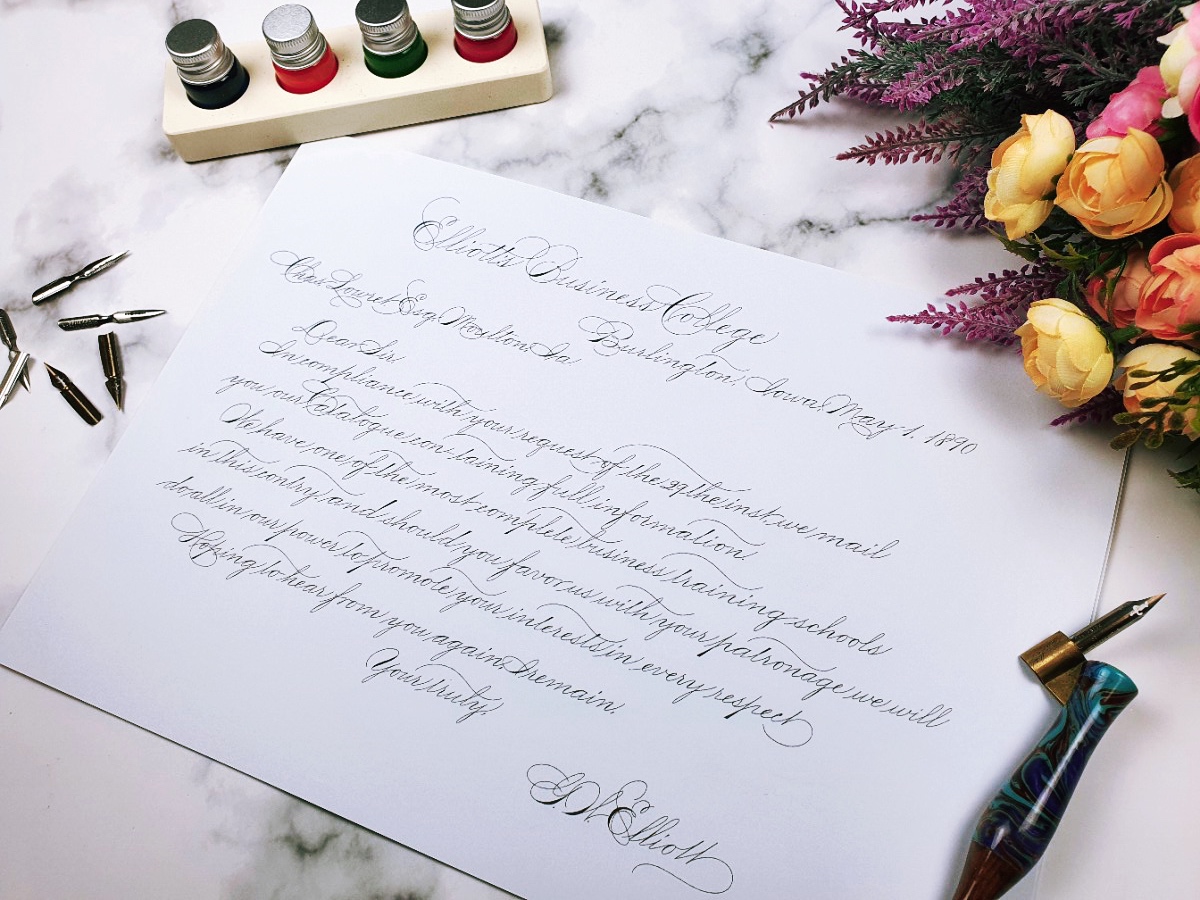 Elliott's Business College
Burlington, Iowa, May 1, 1890
Chas. Esq. Moulton, Ia.
Dear Sir.
In compliance with your request of the 29 the inst, we mail
you our Catalogue con-taining full information.
We have one of the most complete business training schools
in this contry, and should you favor us with your patronage we will
do all in our power to promote your interests in every respect
Hoping to hear from you again, I remain.
Yours truly.
G.W. Elliott